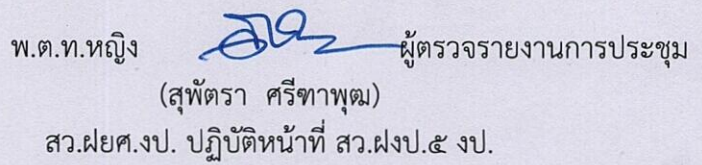 พ.ต.ท.หญิง ผู้ตรวจรายงานการประชุม
(สุพัตรา ศรีฑาพุฒ)
สว.ฝยศ.งป. ปฏิบัติหน้าที่ สว.ฝงป.๕ งป.